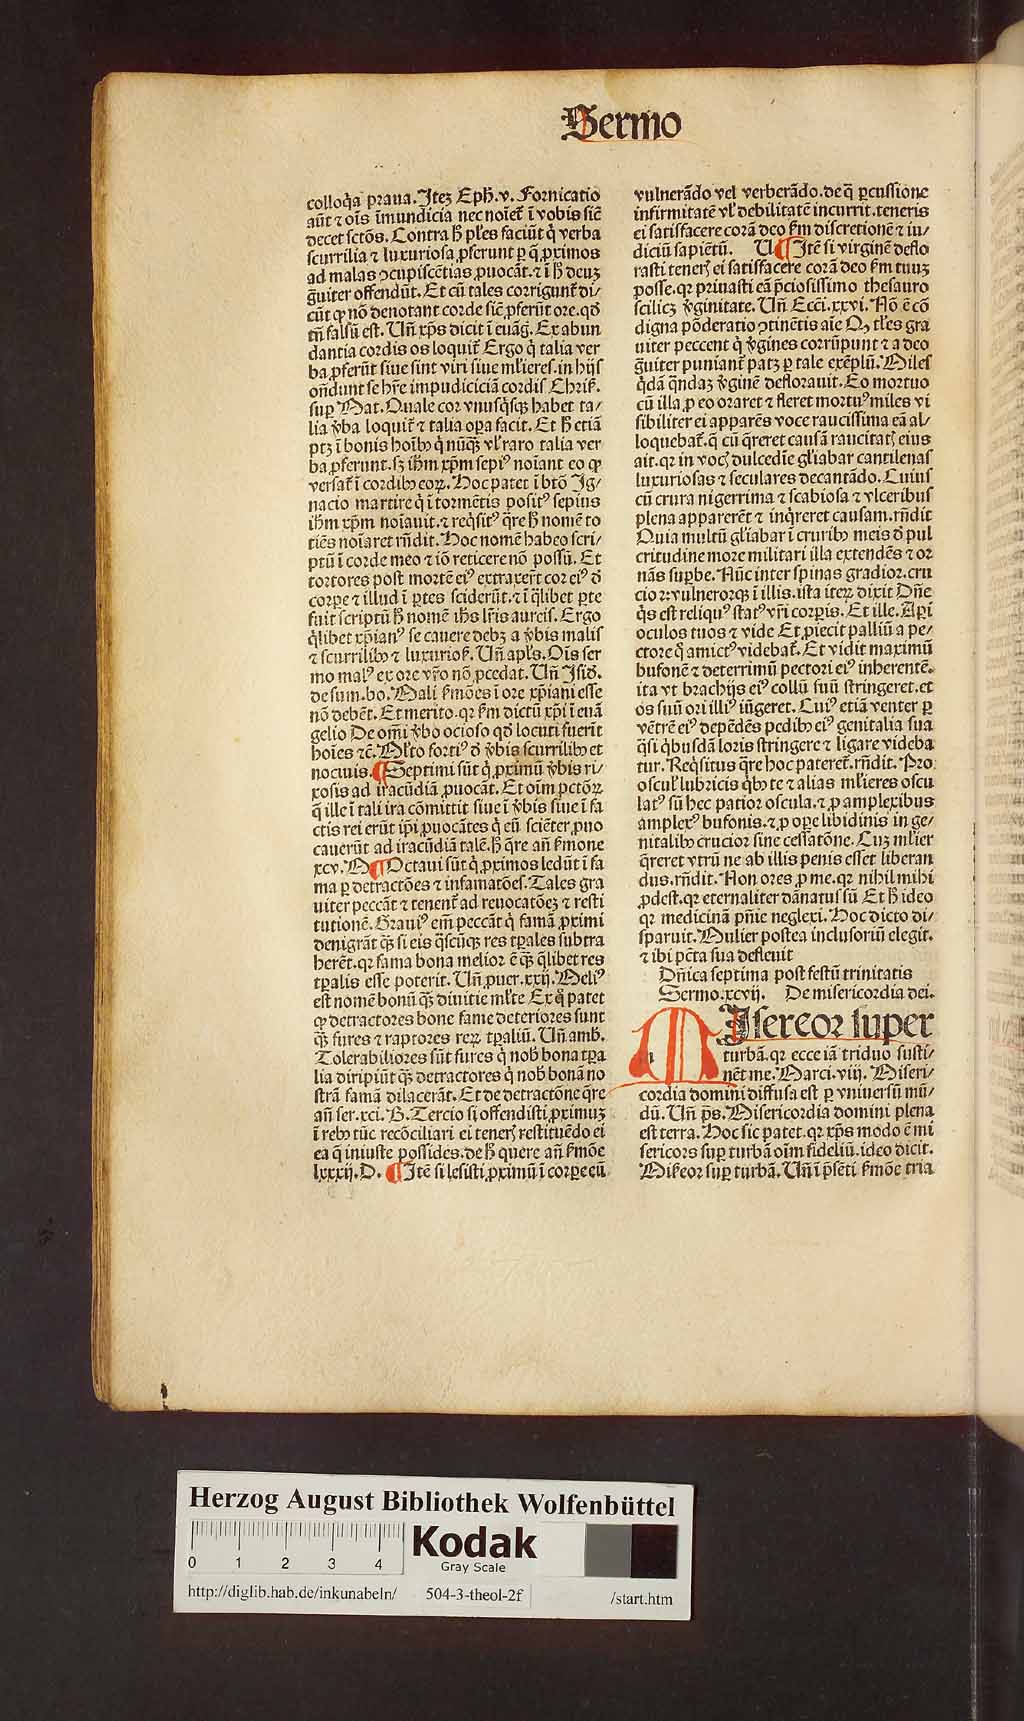 Sermo
colloq̃a praua. Itez Eph̃. v. Fornicatio
aũt ⁊ oĩs ĩmundicia nec noĩet̃ ĩ vobis siẽ
decet sctõs. Contra h̃ ples faciũt q̃ verba
scurrilia ⁊ luxuriosa ꝓferunt ꝑ q̃ ꝓximos
ad malas ↄcupiscẽtias ꝓuocãt. ⁊ ĩ h̃ deuꝫ
g̃uiter offendũt. Et cũ tales corrigunt̃ di⸗
cũt ꝙ nõ denotant corde siẽ ꝓferũt ore. qð
tñ falsũ est. Uñ xp̃s dicit ĩ euãg̃. Ex abun
dantia cordis os loquit̃ Ergo q̃ talia ver
ba ꝓferũt siue sint viri siue ml̃ieres. in hijs
oñdunt se hr̃e impudiciciã cordis Chriẜ.
suꝑ Mat. Quale cor vnusq̃sqꝫ habet ta⸗
lia v̓ba loquit̃ ⁊ talia oꝑa facit. Et h̃ etiã
ptꝫ ĩ bonis hoĩbꝰ q̃ nũqꝫ vl̓ raro talia ver
ba ꝓferunt. sꝫ ih̃m xp̃m sepiꝰ noĩant eo ꝙ
versat̃ ĩ cordibꝰ eoꝝ. Hoc patet ĩ btõ Ig⸗
nacio martire q̃ ĩ tormẽtis positꝰ sepius
ih̃m xp̃m noĩauit. ⁊ req̃sitꝰ q̃re h̃ nomẽ to
tiẽs noĩaret rñdit. Hoc nomẽ habeo scri⸗
ptũ ĩ corde meo ⁊ iõ reticere nõ possũ. Et
tortores post mortẽ eiꝰ extraxer̃t cor eiꝰ ð
corpe ⁊ illud ĩ ꝑtes sciderũt. ⁊ ĩ q̃libet ꝑte
fuit scriptũ h̃ nomẽ ih̃s lr̃is aureis. Ergo
q̃libet xp̃ianꝰ se cauere debꝫ a v̓bis malis
⁊ scurrilibꝰ ⁊ luxurioẜ. Uñ apl̃s. Oĩs ser
mo malꝰ ex ore vr̃o nõ ꝓcedat. Uñ Isid̃.
de sum. bo. Mali ẜmões ĩ ore xp̃iani esse
nõ debẽt. Et merito. qꝛ ẜm dictũ xp̃i ĩ euã
gelio De om̃i v̓bo ocioso qð locuti fuerĩt
hoĩes ⁊c̃. Ml̓to fortiꝰ ð v̓bis scurrilibꝰ et
nociuis. ¶ Septimi sũt q̃ ꝓximũ v̓bis ri⸗
xosis ad iracũdiã ꝓuocãt. Et oĩm pctõꝝ
q̃ ille ĩ tali ira cõmittit siue ĩ v̓bis siue ĩ fa
ctis rei erũt ip̃i ꝓuocãtes q̃ eũ sciẽter ꝓuo
cauerũt ad iracũdiã talẽ. h̃ q̃re añ ẜmone
xcv. M ¶ Octaui sũt q̃ ꝓximos ledũt ĩ fa
ma ꝑ detractões ⁊ infamatões. Tales gra
uiter peccãt ⁊ tenent̃ ad reuocatõeꝫ ⁊ resti
tutionẽ. Grauiꝰ em̃ peccãt q̃ famã ꝓximi
denigrãt qꝫ̃ si eis q̃scũqꝫ res tꝑales subtra
herẽt. qꝛ fama bona melior ẽ qꝫ̃ q̃libet res
tꝑalis esse poterit. Uñ ꝓuer. xxij. Meliꝰ
est nomẽ bonũ qꝫ̃ diuitie ml̓te Ex q̃ patet
ꝙ detractores bone fame deteriores sunt
qꝫ̃ fures ⁊ raptores reꝝ tꝑaliũ. Uñ amb̃.
Tolerabiliores sũt fures q̃ nob̃ bona tꝑa
lia diripiũt qꝫ̃ detractores q̃ nob̃ bonã no
strã famã dilacerãt. Et de detractõne q̃re
añ ser. xci. B. Tercio si offendisti ꝓximuꝫ
ĩ rebꝰ tũc recõciliari ei teneꝝ restituẽdo ei
ea q̃ iniuste possides. de h̃ quere añ ẜmõe
lxxxij. D. ¶ Itẽ si lesisti ꝓximũ ĩ corꝑe eũ
vulnerãdo vel verberãdo. de q̃ ꝑcussione
infirmitatẽ vl̓ debilitatẽ incurrit. teneris
ei satisfacere corã deo ẜm discretionẽ ⁊ iu⸗
diciũ sapiẽtũ. U ¶ Itẽ si virginẽ deflo
rasti teneꝝ ei satisfacere corã deo ẜm tuuꝫ
posse. qꝛ priuasti eã p̃ciosissimo thesauro
scilicꝫ v̓ginitate. Uñ Ecci. xxvi. Nõ ẽ cõ
digna põderatio ↄtinẽtis aĩe Qꝫ tl̓es gra
uiter peccent q̃ v̓gines corrũpunt ⁊ a deo
g̃uiter puniant̃ patꝫ ꝑ tale exẽplũ. Miles
q̃dã q̃ndaꝫ v̓ginẽ deflorauit. Eo mortuo
cũ illa ꝓ eo oraret ⁊ fleret mortuꝰ miles vi
sibiliter ei apparẽs voce raucissima eã al⸗
loquebat̃. q̃ cũ q̃reret causã raucitatꝭ eius
ait. qꝛ in vocꝭ dulcedĩe gl̓iabar cantilenas
luxuriosas ⁊ seculares decantãdo. Cuius
cũ crura nigerrima ⁊ scabiosa ⁊ vlceribus
plena apparerẽt ⁊ inq̃reret causam. rñdit
Quia multũ gl̓iabar ĩ cruribꝰ meis ð pul
critudine more militari illa extendẽs ⁊ or
nãs suꝑbe. Nũc inter spinas gradior. cru
cior ⁊ vulnerorqꝫ ĩ illis. ista iteꝝ dixit Dñe
q̃s est reliquꝰ statꝰ vr̃i corꝑis. Et ille. Aꝑi
oculos tuos ⁊ vide Et ꝓiecit palliũ a pe⸗
ctore q̃ amictꝰ videbat̃. Et vidit maximũ
bufonẽ ⁊ deterrimũ pectori eiꝰ inherentẽ.
ita vt brachijs eiꝰ collũ suũ stringeret. et
os suũ ori illiꝰ iũgeret. Cuiꝰ etiã venter ꝑ
vẽtrẽ eiꝰ depẽdẽs pedibꝰ eiꝰ genitalia sua
q̃si q̃busdã loris stringere ⁊ ligare videba
tur. Req̃situs q̃re hoc pateret̃. rñdit. Pro
oscul̓ lubricis q̃bꝰ te ⁊ alias ml̓ieres oscu
latꝰ sũ hec patior oscula. ⁊ ꝓ amplexibus
amplexꝰ bufonis. ⁊ ꝓ oꝑe libidinis in ge⸗
nitalibꝰ crucior sine cessatõne. Cuꝫ ml̓ier
q̃reret vtrũ ne ab illis penis esset liberan
dus. rñdit. Non ores ꝓ me. qꝛ nihil mihi
ꝓdest. qꝛ eternaliter dãnatus sũ Et h̃ ideo
qꝛ medicinã pñie neglexi. Hoc dicto di⸗
sparuit. Mulier postea inclusoriũ elegit.
⁊ ibi pctã sua defleuit
Dñica septima post festũ trinitatis
Sermo. xcvij. De misericordia dei.
MIsereor super
turbã. qꝛ ecce iã triduo susti⸗
nẽt me. Marci. viij. Miseri⸗
cordia domini diffusa est ꝑ vniuersũ mũ⸗
dũ. Uñ p̃s. Misericordia domini plena
est terra. Hoc sic patet. qꝛ xp̃s modo ẽ mi
sericors suꝑ turbã oĩm fideliũ. ideo dicit.
Miẜeor suꝑ turbã. Uñ ĩ p̃sẽti ẜmõe tria
Herzog August Bibliothek Wolfenbüttel
0 1 2 3 4
Kodak
Gray Scale
http://diglib.hab.de/inkunabeln/ 504-3-theol-2f /start.htm